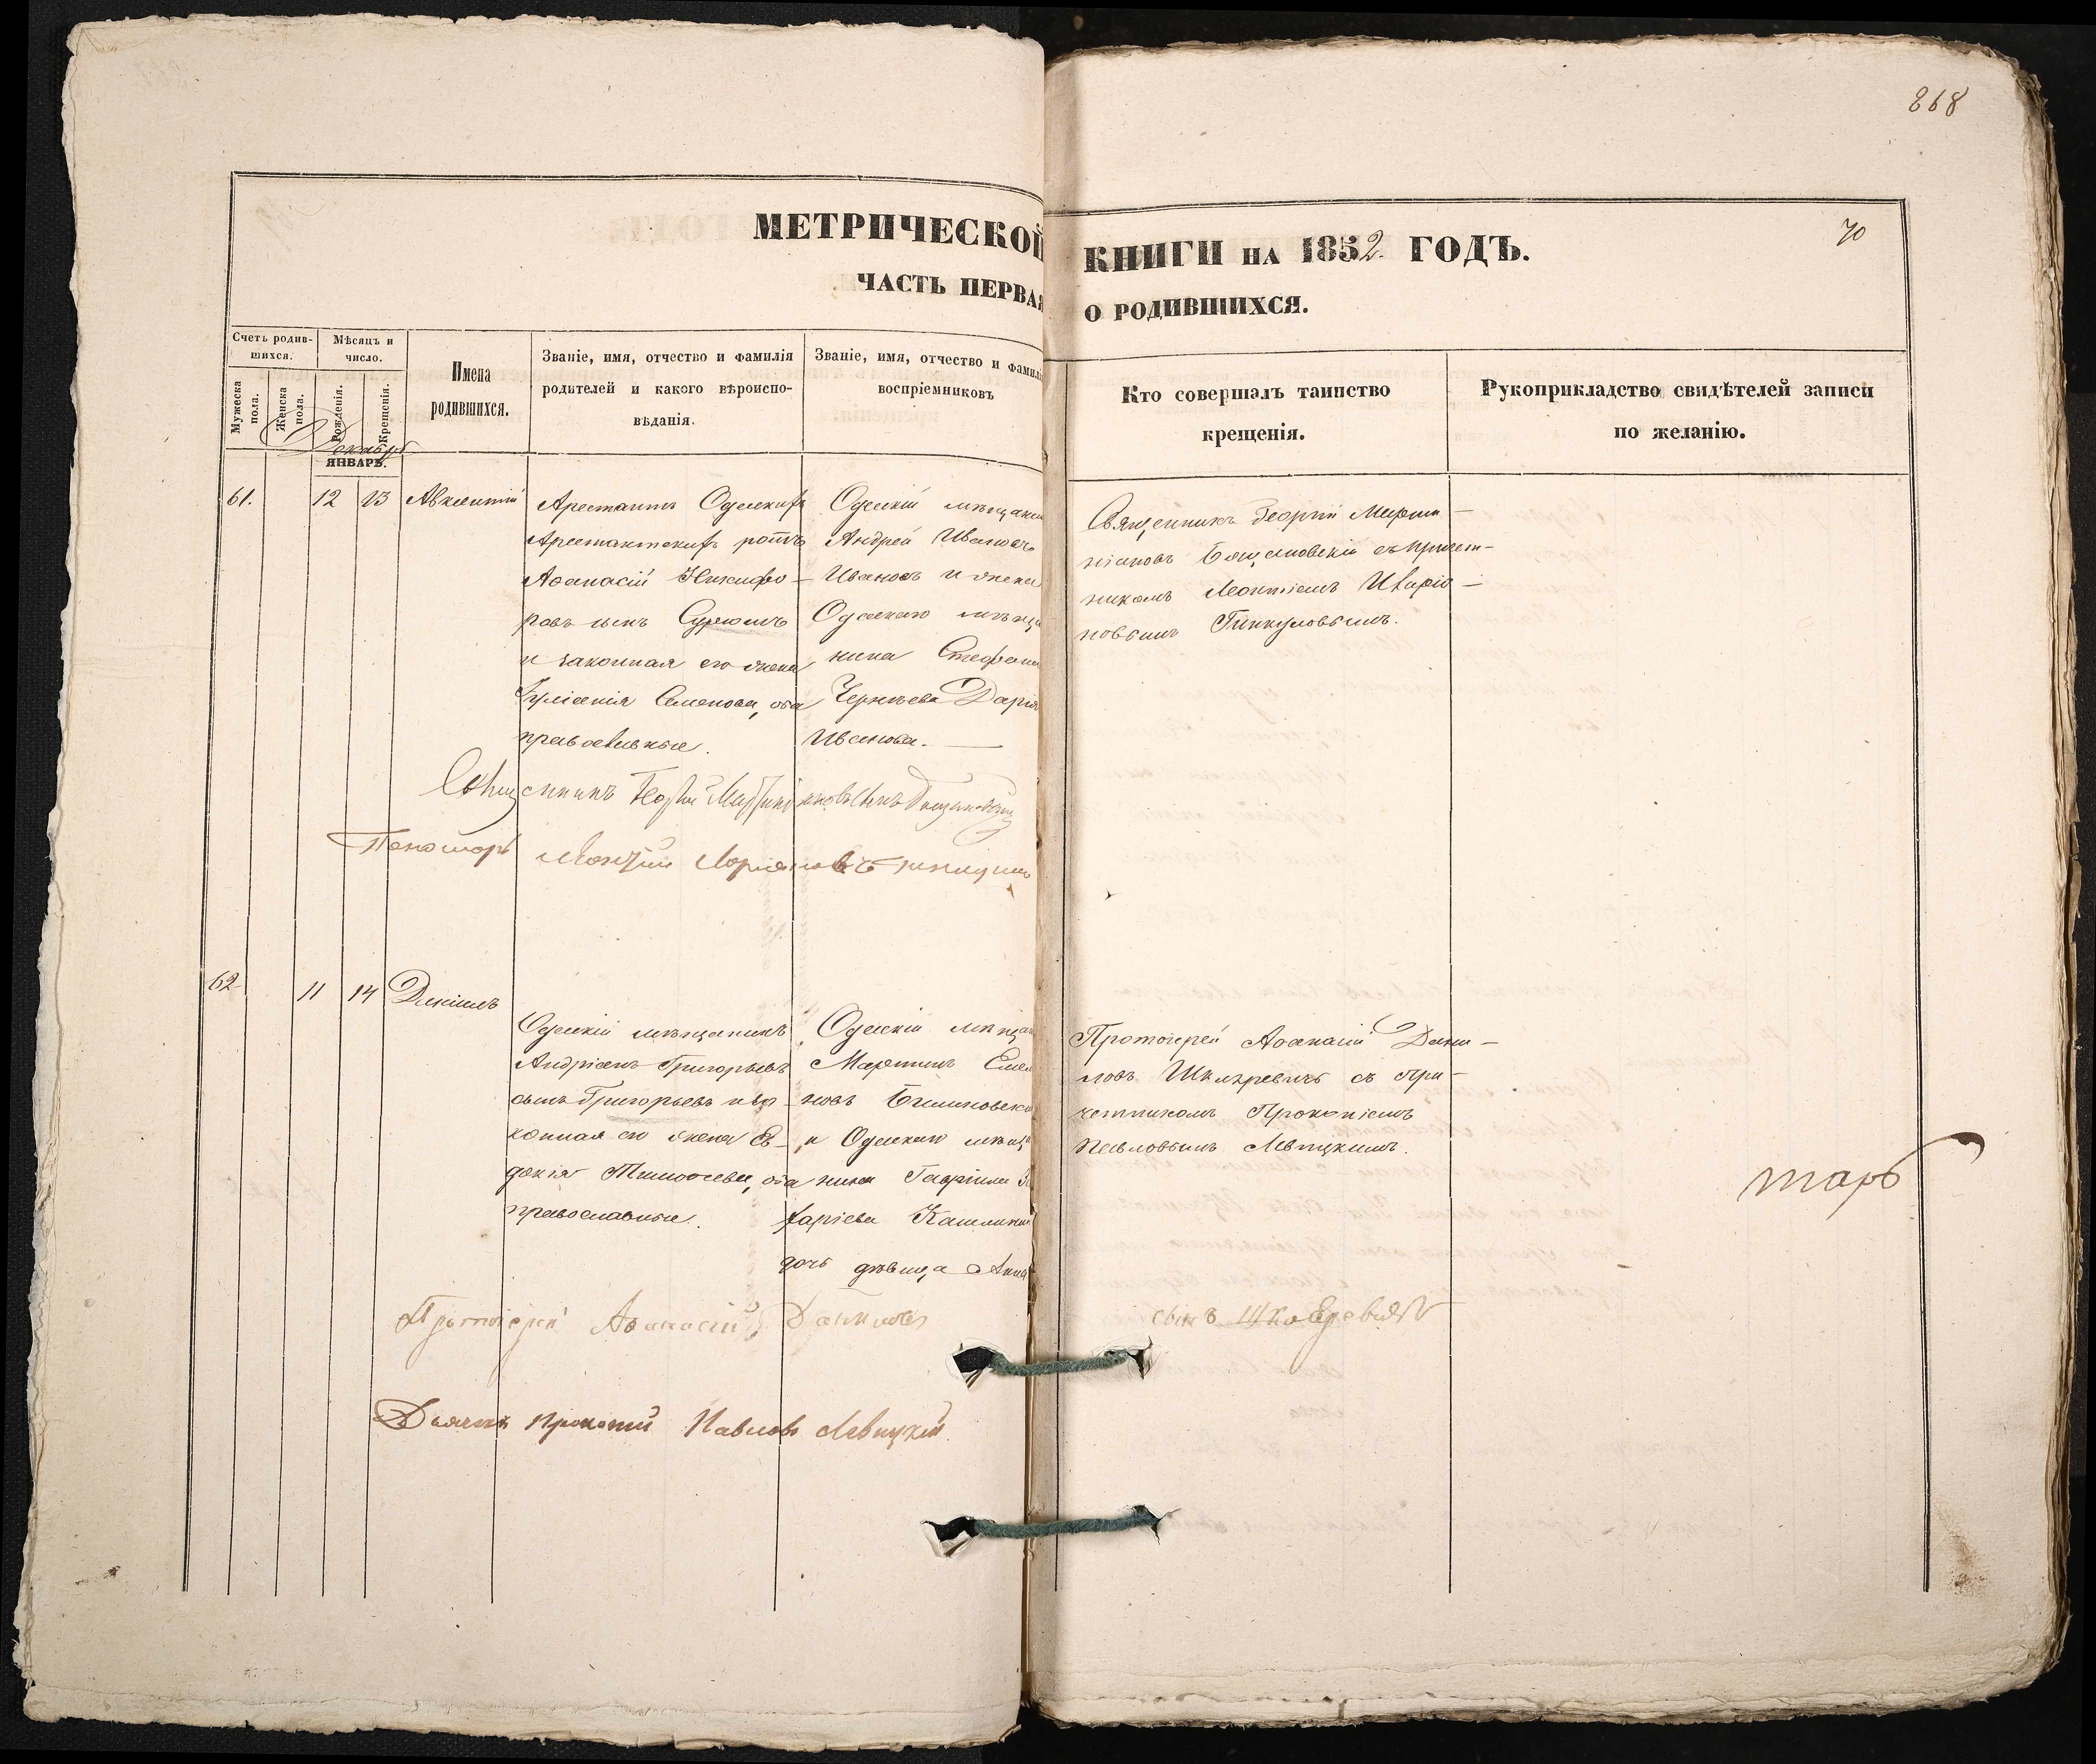 868
МЕТРИЧЕСКОЙ КНИГИ НА 1852 ГОДЪ.
70
ЧАСТЬ ПЕРВАЯ О РОДИВШИХСЯ.
Счетъ родив-
шихся.
Мужеска пола.
Женска пола.
Мѣсяцъ и
число.
Рожденія.
Крещенія.
Имена
родившихся.
Званіе, имя, отчество и фамилія
родителей и какого вѣроиспо-
вѣданія.
Званіе, имя, отчество и фамилі
воспріемниковъ
Кто совершалъ таинство
крещенія.
Рукоприкладство свидѣтелей записи
по желанію.
Декабрь
ЯНВАРЬ.
61.
12
13
Авксентій
Арестантъ Одескихъ
Арестантскихъ ротъ
Аѳанасій Никифо-
ровъ сынъ
и законная его жена
Семенова, оба
православные.
Одескій мѣщани
Андрей Ивановъ
Ивановъ и жена
Одескаго мѣща
нина Стефана
Чернѣева Дарія
Иванова.
Священникъ Георгій Марти-
ніановъ съ причет-
никомъ Леонтіемъ Иларіо-
новымъ Гинкуловымъ.
Священникъ Георгій
Пономарь
62
11
14
Даніилъ
Одескій мѣщанинъ
Андріанъ Григорьевъ
сынъ Григорьевъ и за-
конная его жена Ев-
докія Тимоѳеева, оба
православные.
Одескій мѣщан
Мартинъ Емел
новъ
и Одескаго мѣща
нина Гавріила За
харіева
дочь дѣвица Анна
Протоіерей Аѳанасій Дани-
ловъ Шкляревичъ съ при-
четникомъ Прокопіемъ
Павловымъ Левицкимъ.
тарь
Протоіерей Аѳанасій Даниловъ
сынъ
Дьячекъ Прокопій Павловъ Левицкій.